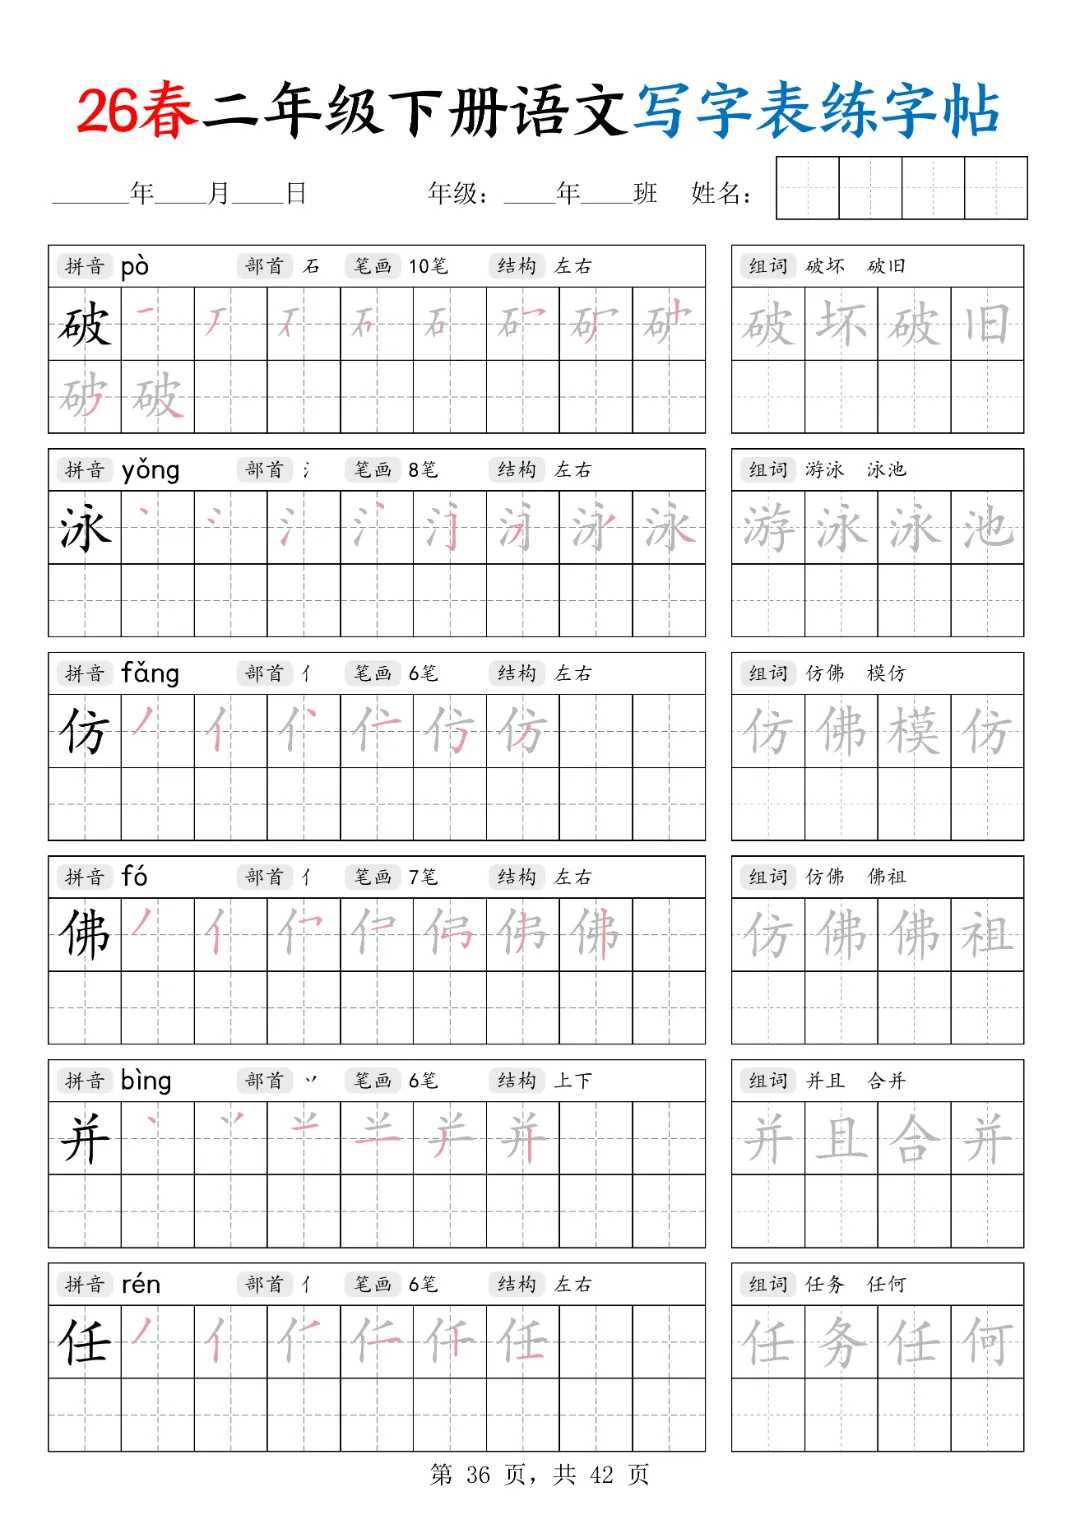 26春二年级下册语文写字表练字帖
______年____月____日 年级：____年____班 姓名：
拼音 pò 部首 石 笔画 10笔 结构 左右 组词 破坏 破旧
破 破坏破旧
破
拼音 yǒng 部首 氵 笔画 8笔 结构 左右 组词 游泳 泳池
泳 泳 游泳泳池
拼音 fǎng 部首 亻 笔画 6笔 结构 左右 组词 仿佛 模仿
仿 仿 仿佛模仿
拼音 fó 部首 亻 笔画 7笔 结构 左右 组词 仿佛 佛祖
佛 佛 仿佛佛祖
拼音 bìng 部首 丷 笔画 6笔 结构 上下 组词 并且 合并
并 并 并且合并
拼音 rén 部首 亻 笔画 6笔 结构 左右 组词 任务 任何
任 任 任务任何
第 36 页，共 42 页